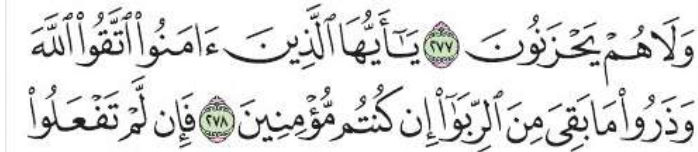 وَلَا هُمْ يَحْزَنُونَ ٢٧٧ يَـٰٓأَيُّهَا ٱلَّذِينَ ءَامَنُوا۟ ٱتَّقُوا۟ ٱللَّهَ
وَذَرُوا۟ مَا بَقِىَ مِنَ ٱلرِّبَوٰٓا۟ إِن كُنتُم مُّؤْمِنِينَ ٢٧٨ فَإِن لَّمْ تَفْعَلُوا۟